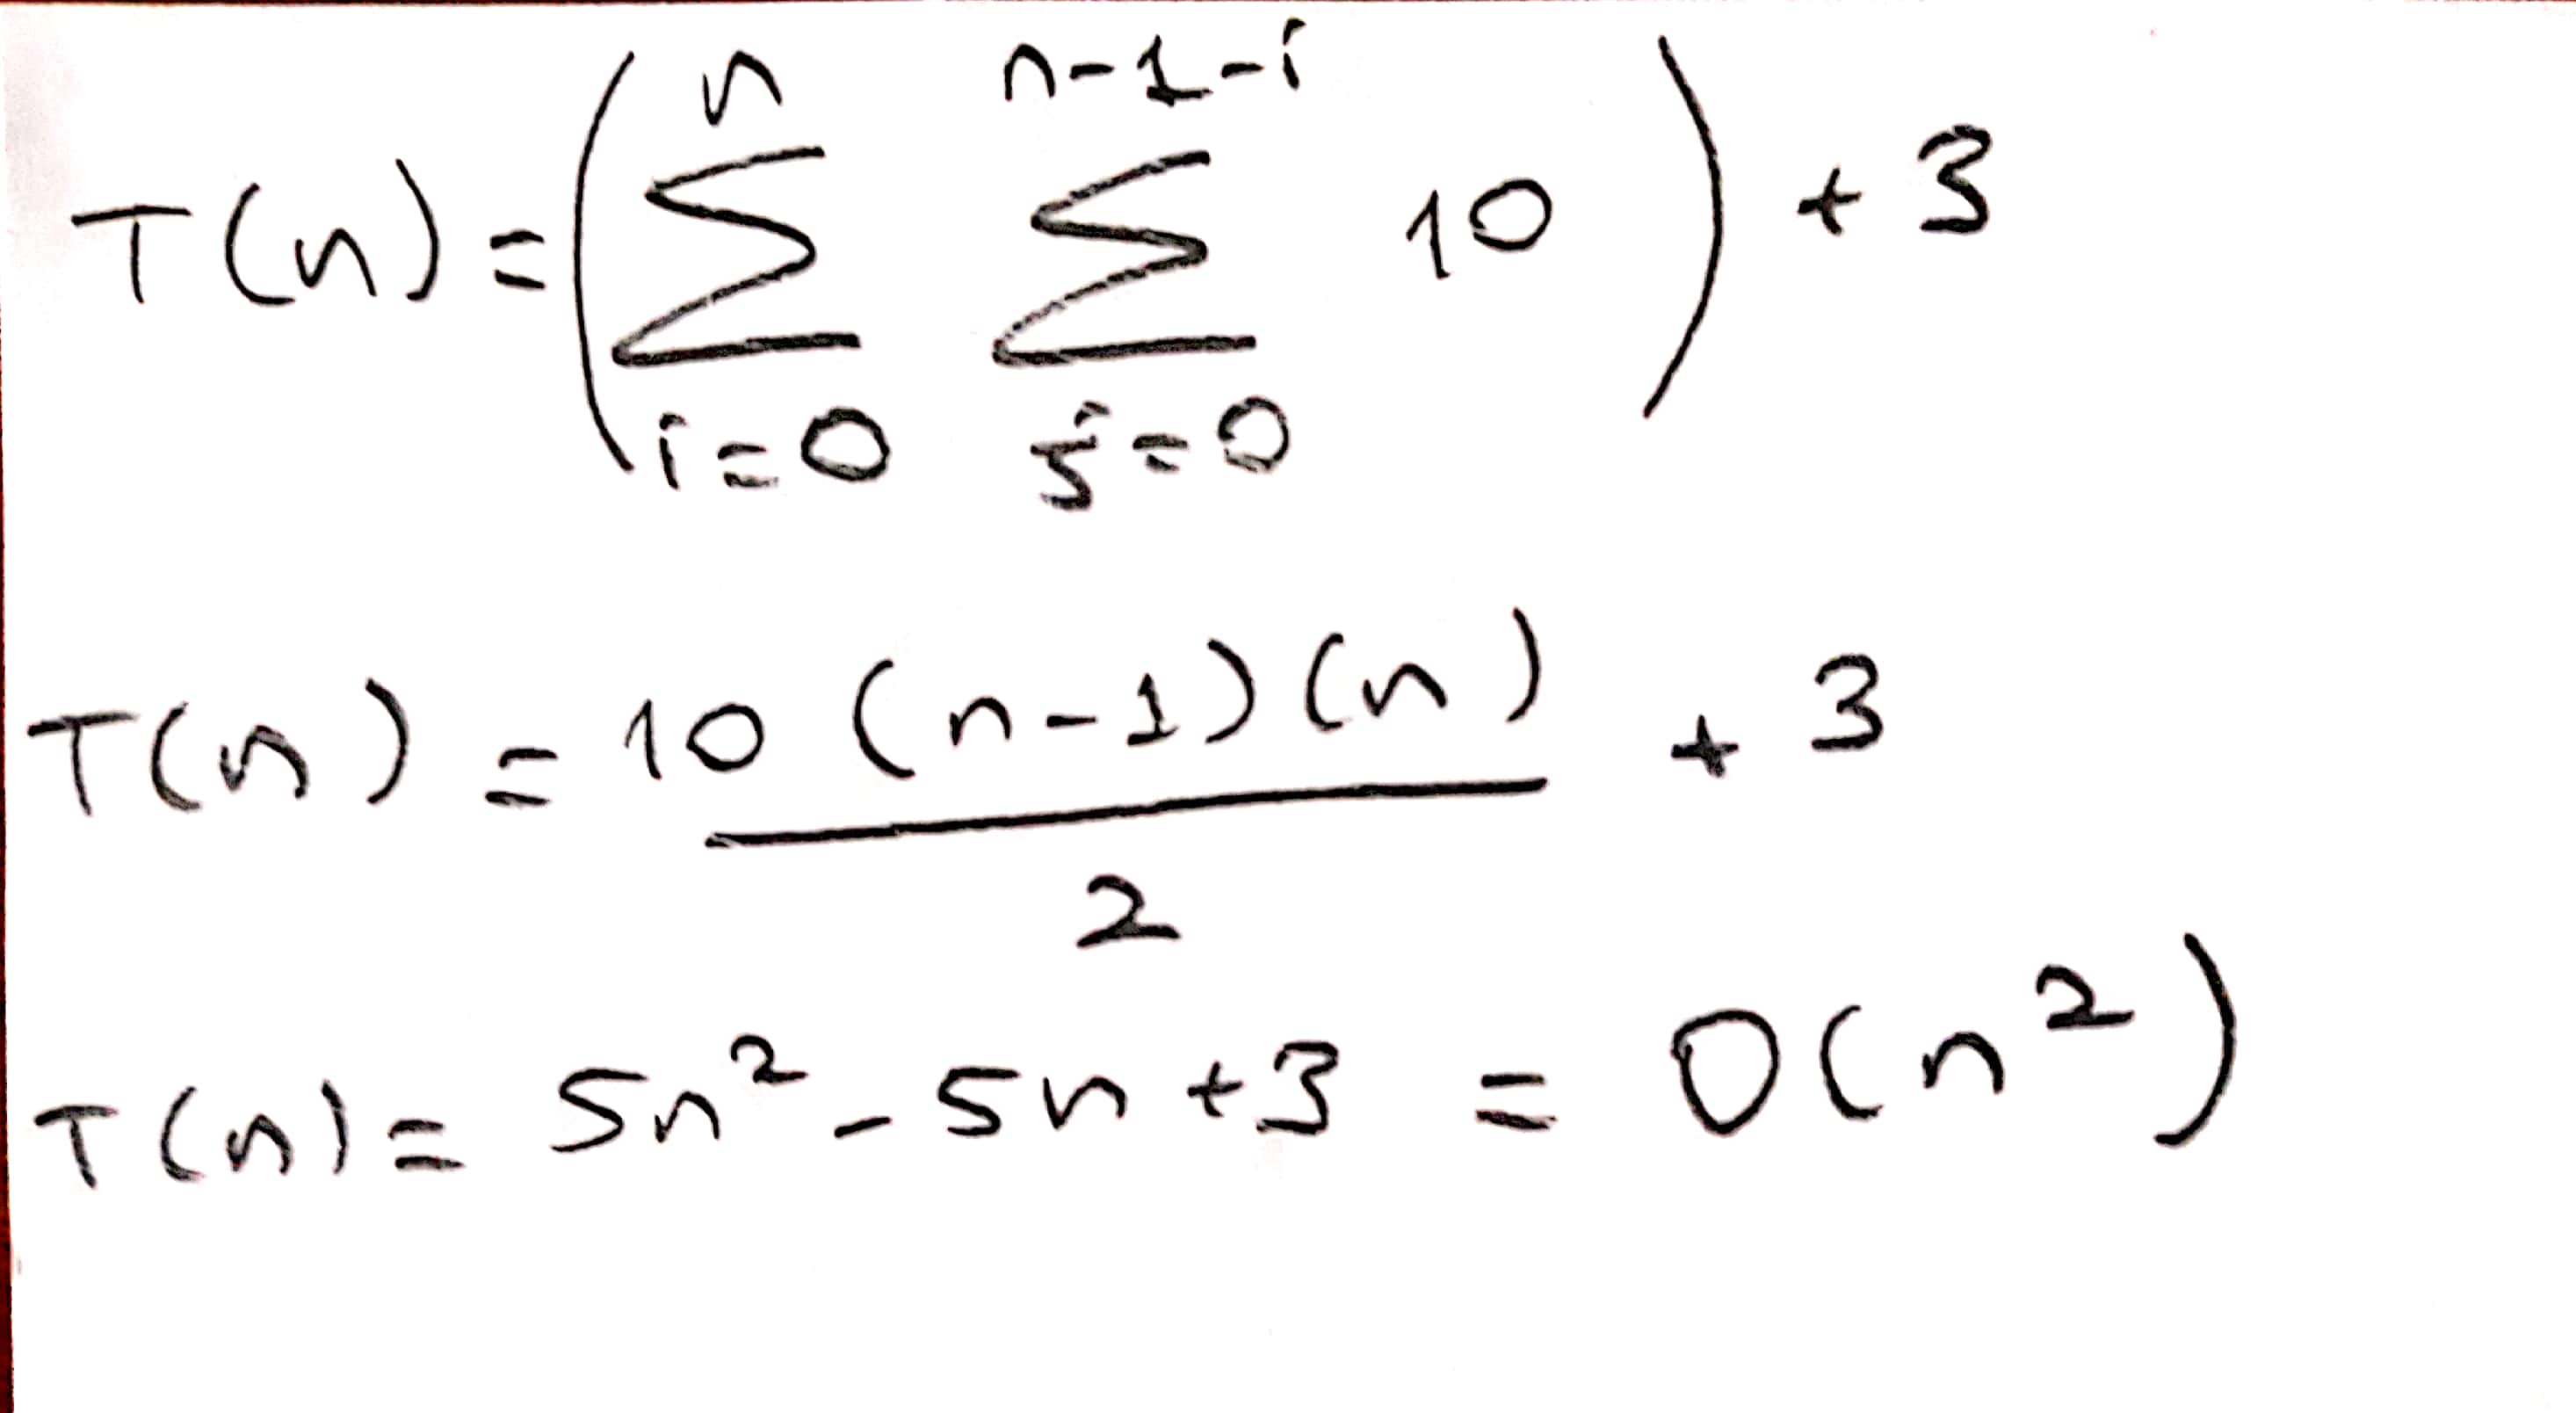 T(n) = ( n∑i=0 n-1-i∑j=0 10 ) + 3
T(n) = 10 (n-1)(n) / 2 + 3
T(n) = 5n² - 5n + 3 = O(n²)